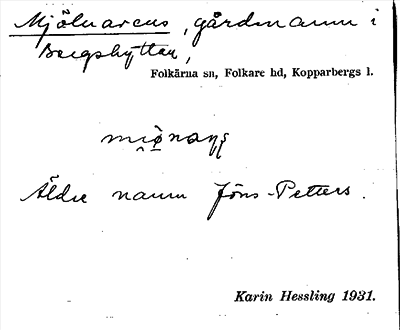 Mjölnarens, gårdnamn i
Bergshyttan,
Folkärna sn, Folkare hd, Kopparbergs l.
Äldre namn Jöns-Petters.
Karin Hessling 1931.